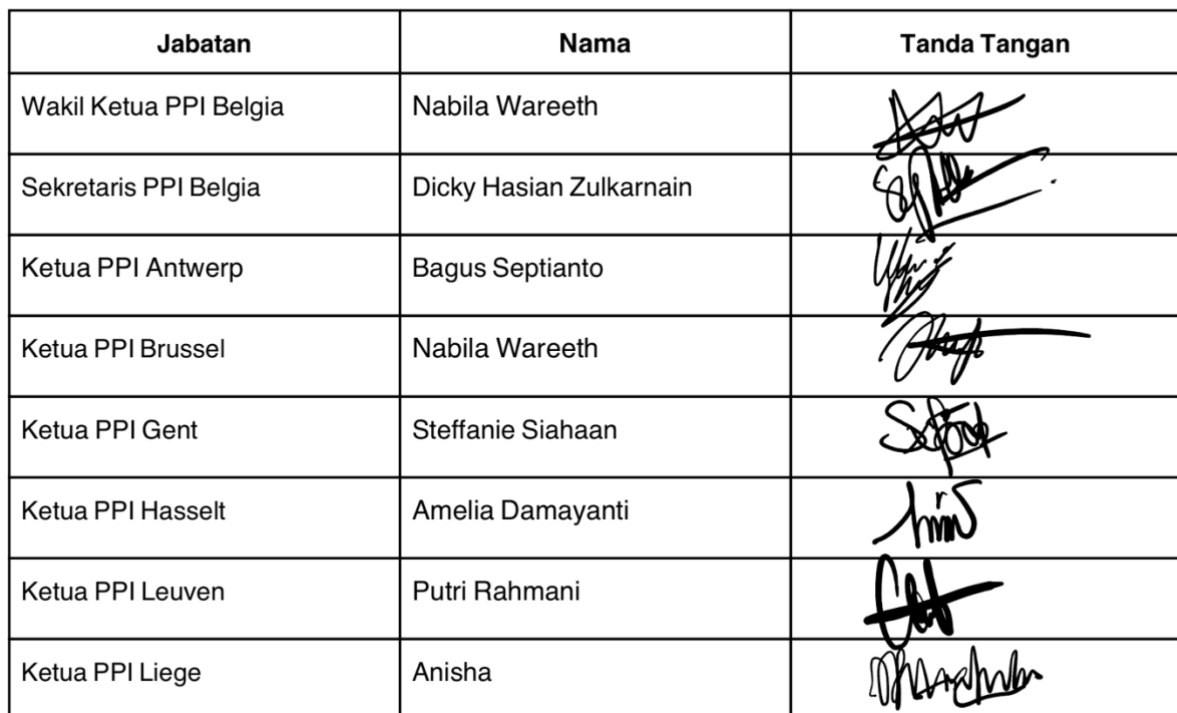 Jabatan Nama Tanda Tangan
Wakil Ketua PPI Belgia Nabila Wareeth
Sekretaris PPI Belgia Dicky Hasian Zulkarnain
Ketua PPI Antwerp Bagus Septianto
Ketua PPI Brussel Nabila Wareeth
Ketua PPI Gent Steffanie Siahaan
Ketua PPI Hasselt Amelia Damayanti
Ketua PPI Leuven Putri Rahmani
Ketua PPI Liege Anisha